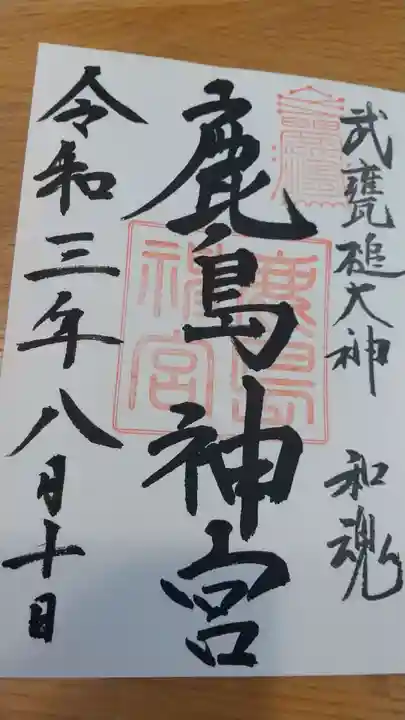 武甕槌大神 和魂
鹿島神宮
鹿島神宮
令和三年八月十日